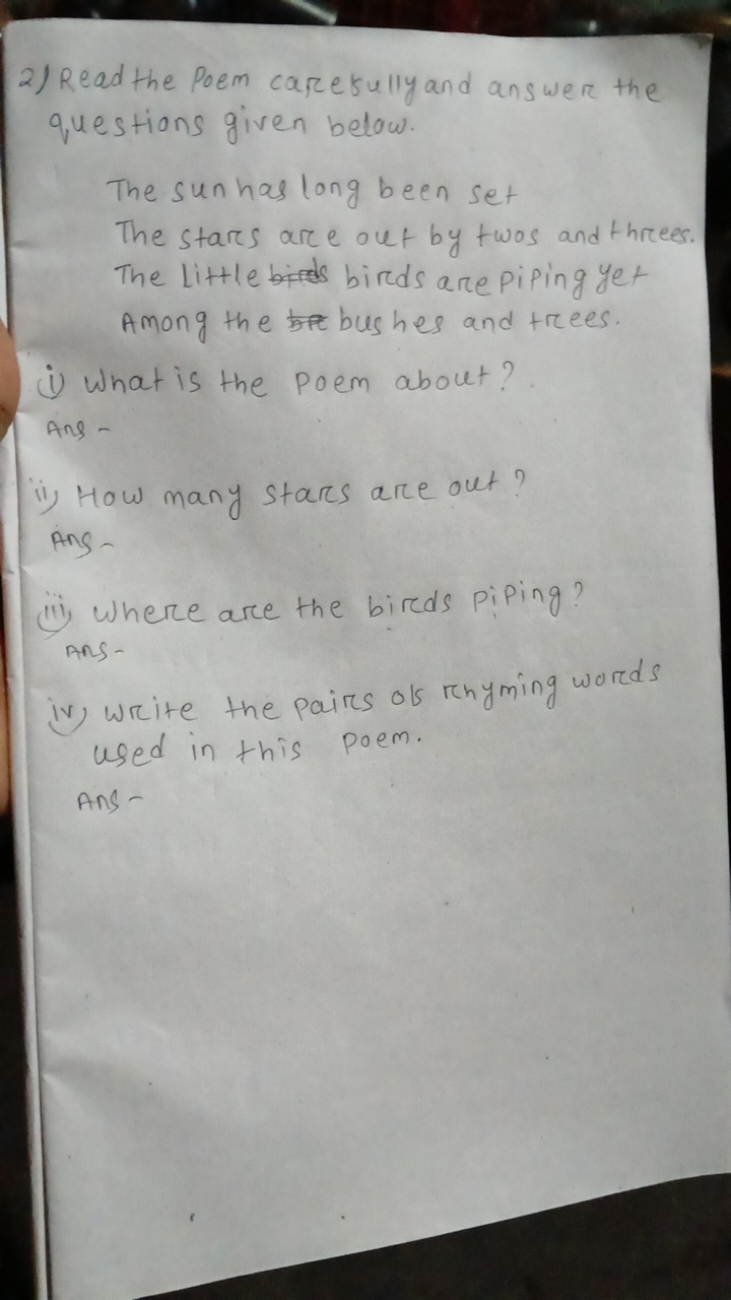 2) Read the Poem carefully and answer the
questions given below.
The sun has long been set
The stars are out by twos and threes.
The Little birds birds are piping yet
Among the bushes and trees.
i) What is the poem about?
Ans -
ii) How many stars are out?
Ans -
iii) Where are the birds piping?
Ans -
iv) write the pairs of rhyming words
used in this poem.
Ans -